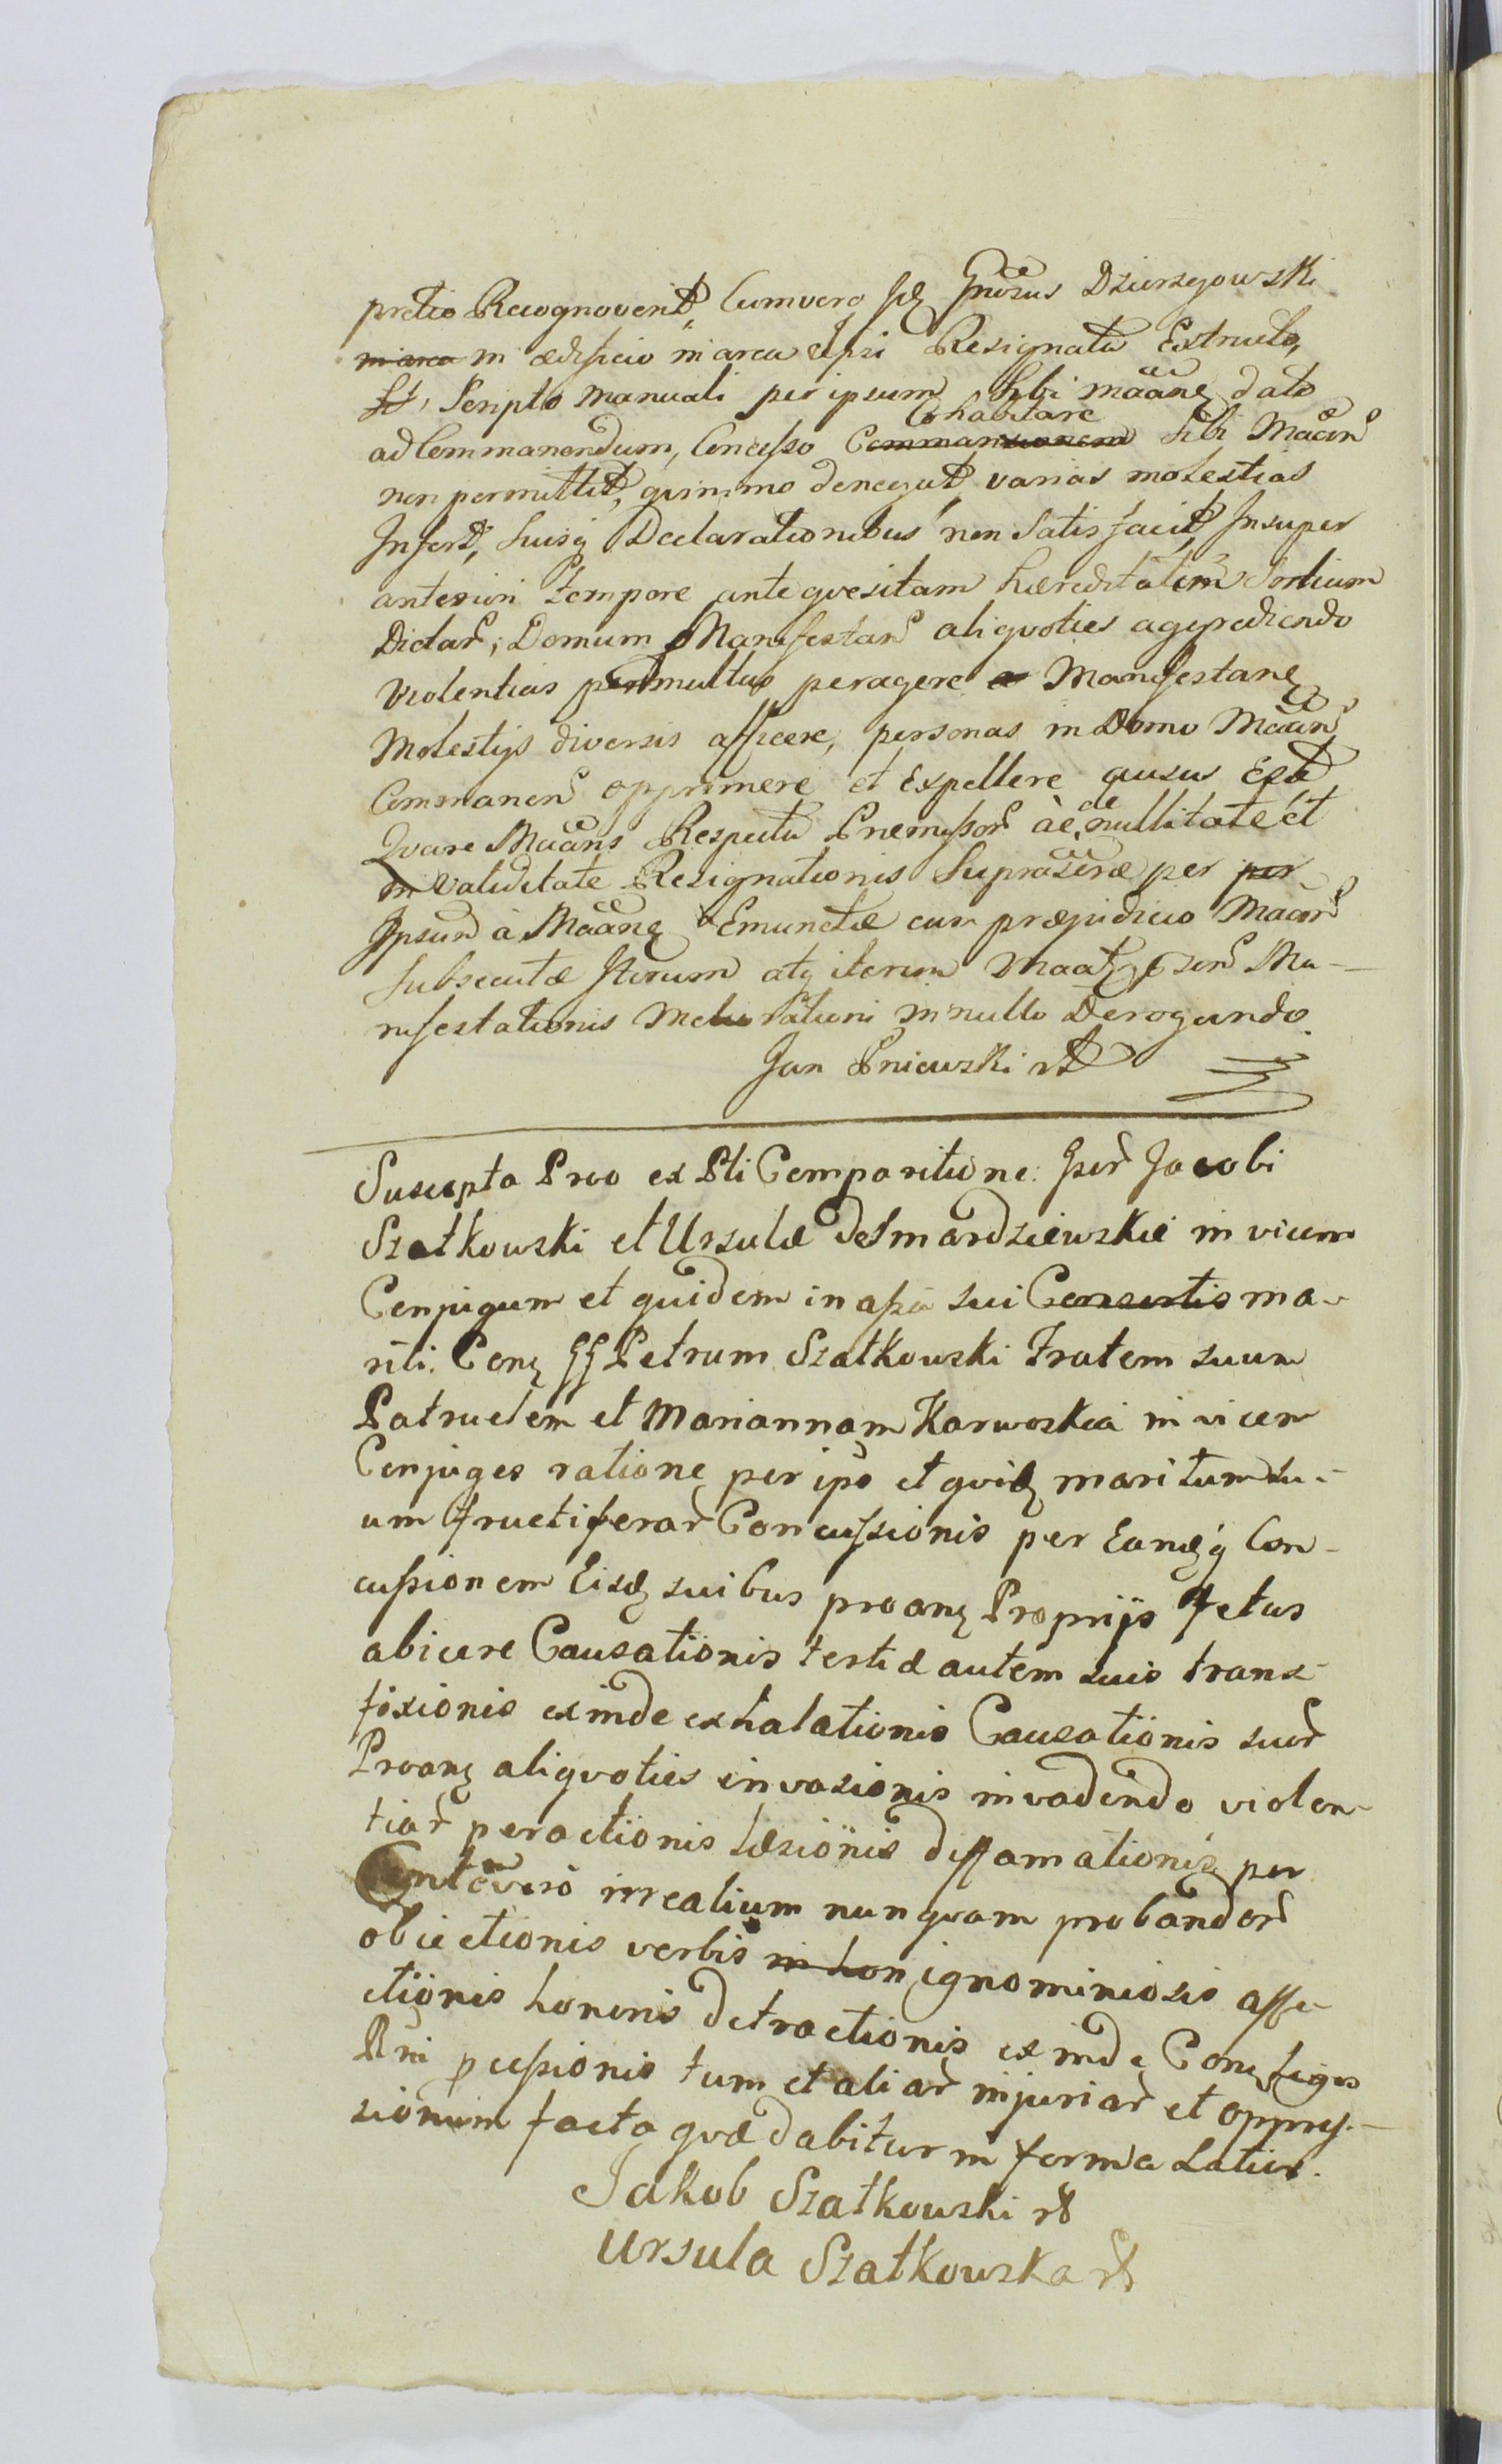 pretio Recognoverit, Cumvero Id Gnosus Dzierzgowski
in area in ædificio in area Ipsi Resignata Extructo,
St, Scripto Manuali per ipsum Sibi Maane dato
Cohabitare
ad Commanendum, Concesso Commansionem Sibi Maan
non permittit, quinimo denegat varias molestias
Infert, Suisq Declarationibus non Satisfacit, Insuper
anteriori tempore ante qvesitam hæreditatem Sortium
Dictar, Domum Manifestan aliqvoties aggrediendo
violentias permultas peragere Manifestane
Molestijs diversis afficere, personas in Domo Maan
Commanen opprimere et Expellere ausus Est
Qvare Maans Respectu Præmissor àc de nullitate et
in validitate Resignationis Supra per per
Ipsum à Maane Emunctæ cum præjudicio Maan
Subsecutæ Iterum atq iterum Ma-
nifestationis Meliorationi in nullo Derogando
Jan Pniewski
Suscepta Pro ex Pti Comparitione Gser Jacobi
Szatkowski et Ursulæ de Smardziewskie in vicem
Conjugum et quidem in assa sui Consortis ma-
riti. Con GG Petrum Szatkowski Fratem suum
Patruelem et Mariannam Karwoskią in vicem
Conjuges ratione per ipso et qvid maritum su-
um fructiferar Concussionis per Eandq Con-
cussionem Eisd suibus proan Proprijs fetus
abicere Causationis tertiæ autem suis trans-
fixionis exinde exhalationis Causationis suor
Proan aliqvoties invasionis invadendo violen-
tiar peractionis læsionis diffamationis per
vero irrealium nunqvam probandor
obiectionis verbis in hon ignominiosis affe-
ctionis honoris detractionis exinde Con
pcussionis tum et aliar injuriar et oppres-
sionum facta qvæ dabitur in forma Latior.
Jakob Szatkowski
Ursula Szatkowska